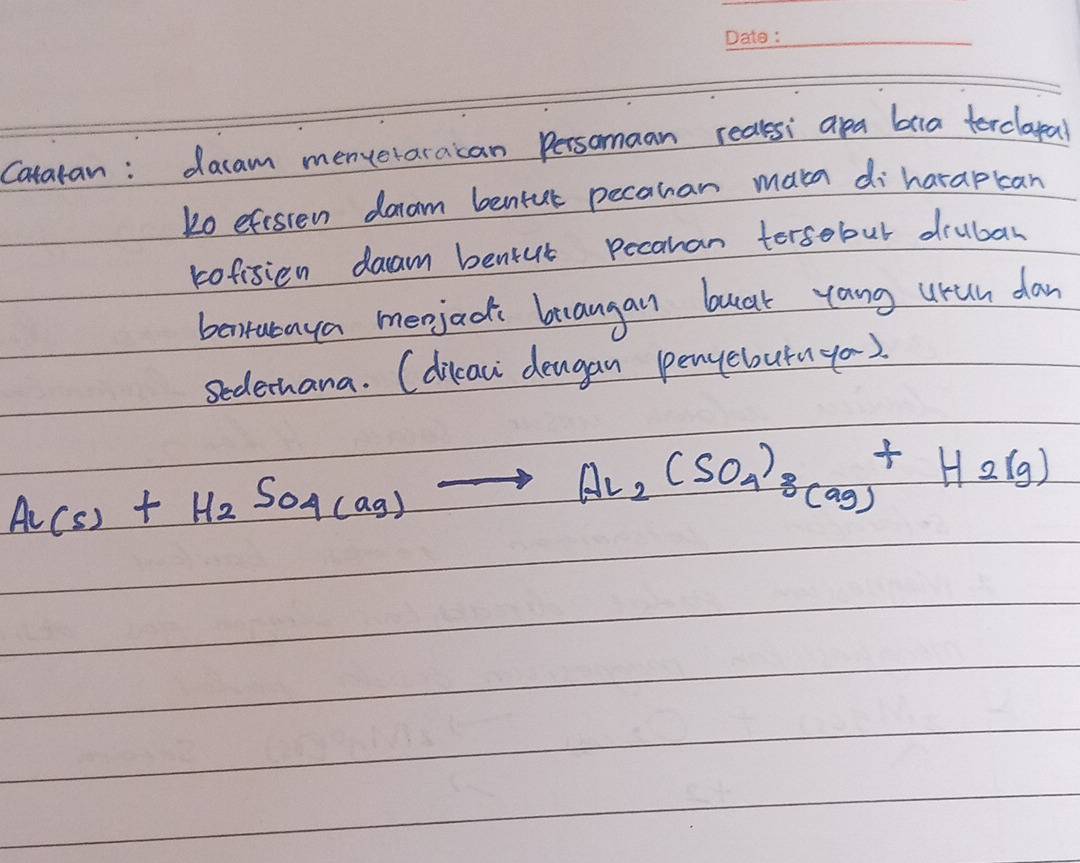 Date :
Catatan : dalam menyetarakan Persamaan reaksi apa bila terdapat
ko efisien dalam bentuk pecahan maka di harapkan
kofisien dalam bentuk pecahan tersebut diubah
bentuknya menjadi bilangan bulat yang utuh dan
sederhana. (dikali dengan penyebutnya).
Al(s) + H2 SO4(aq) → Al2 (SO4)3(aq) + H2(g)